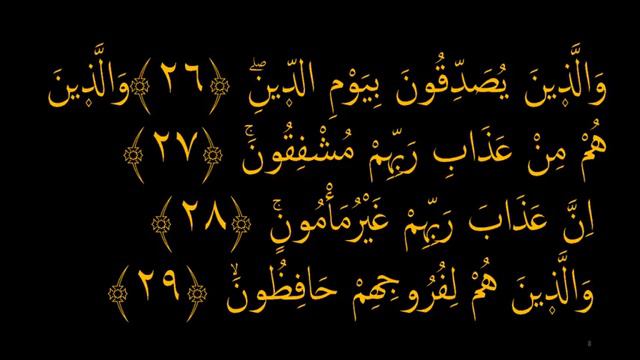 وَالَّذ۪ينَ يُصَدِّقُونَ بِيَوْمِ الدّ۪ينِۖ ﴿٢٦﴾وَالَّذ۪ينَ
هُمْ مِنْ عَذَابِ رَبِّهِمْ مُشْفِقُونَۚ ﴿٢٧﴾
اِنَّ عَذَابَ رَبِّهِمْ غَيْرُمَأْمُونٍۚ ﴿٢٨﴾
وَالَّذ۪ينَ هُمْ لِفُرُوجِهِمْ حَافِظُونَۙ ﴿٢٩﴾
8